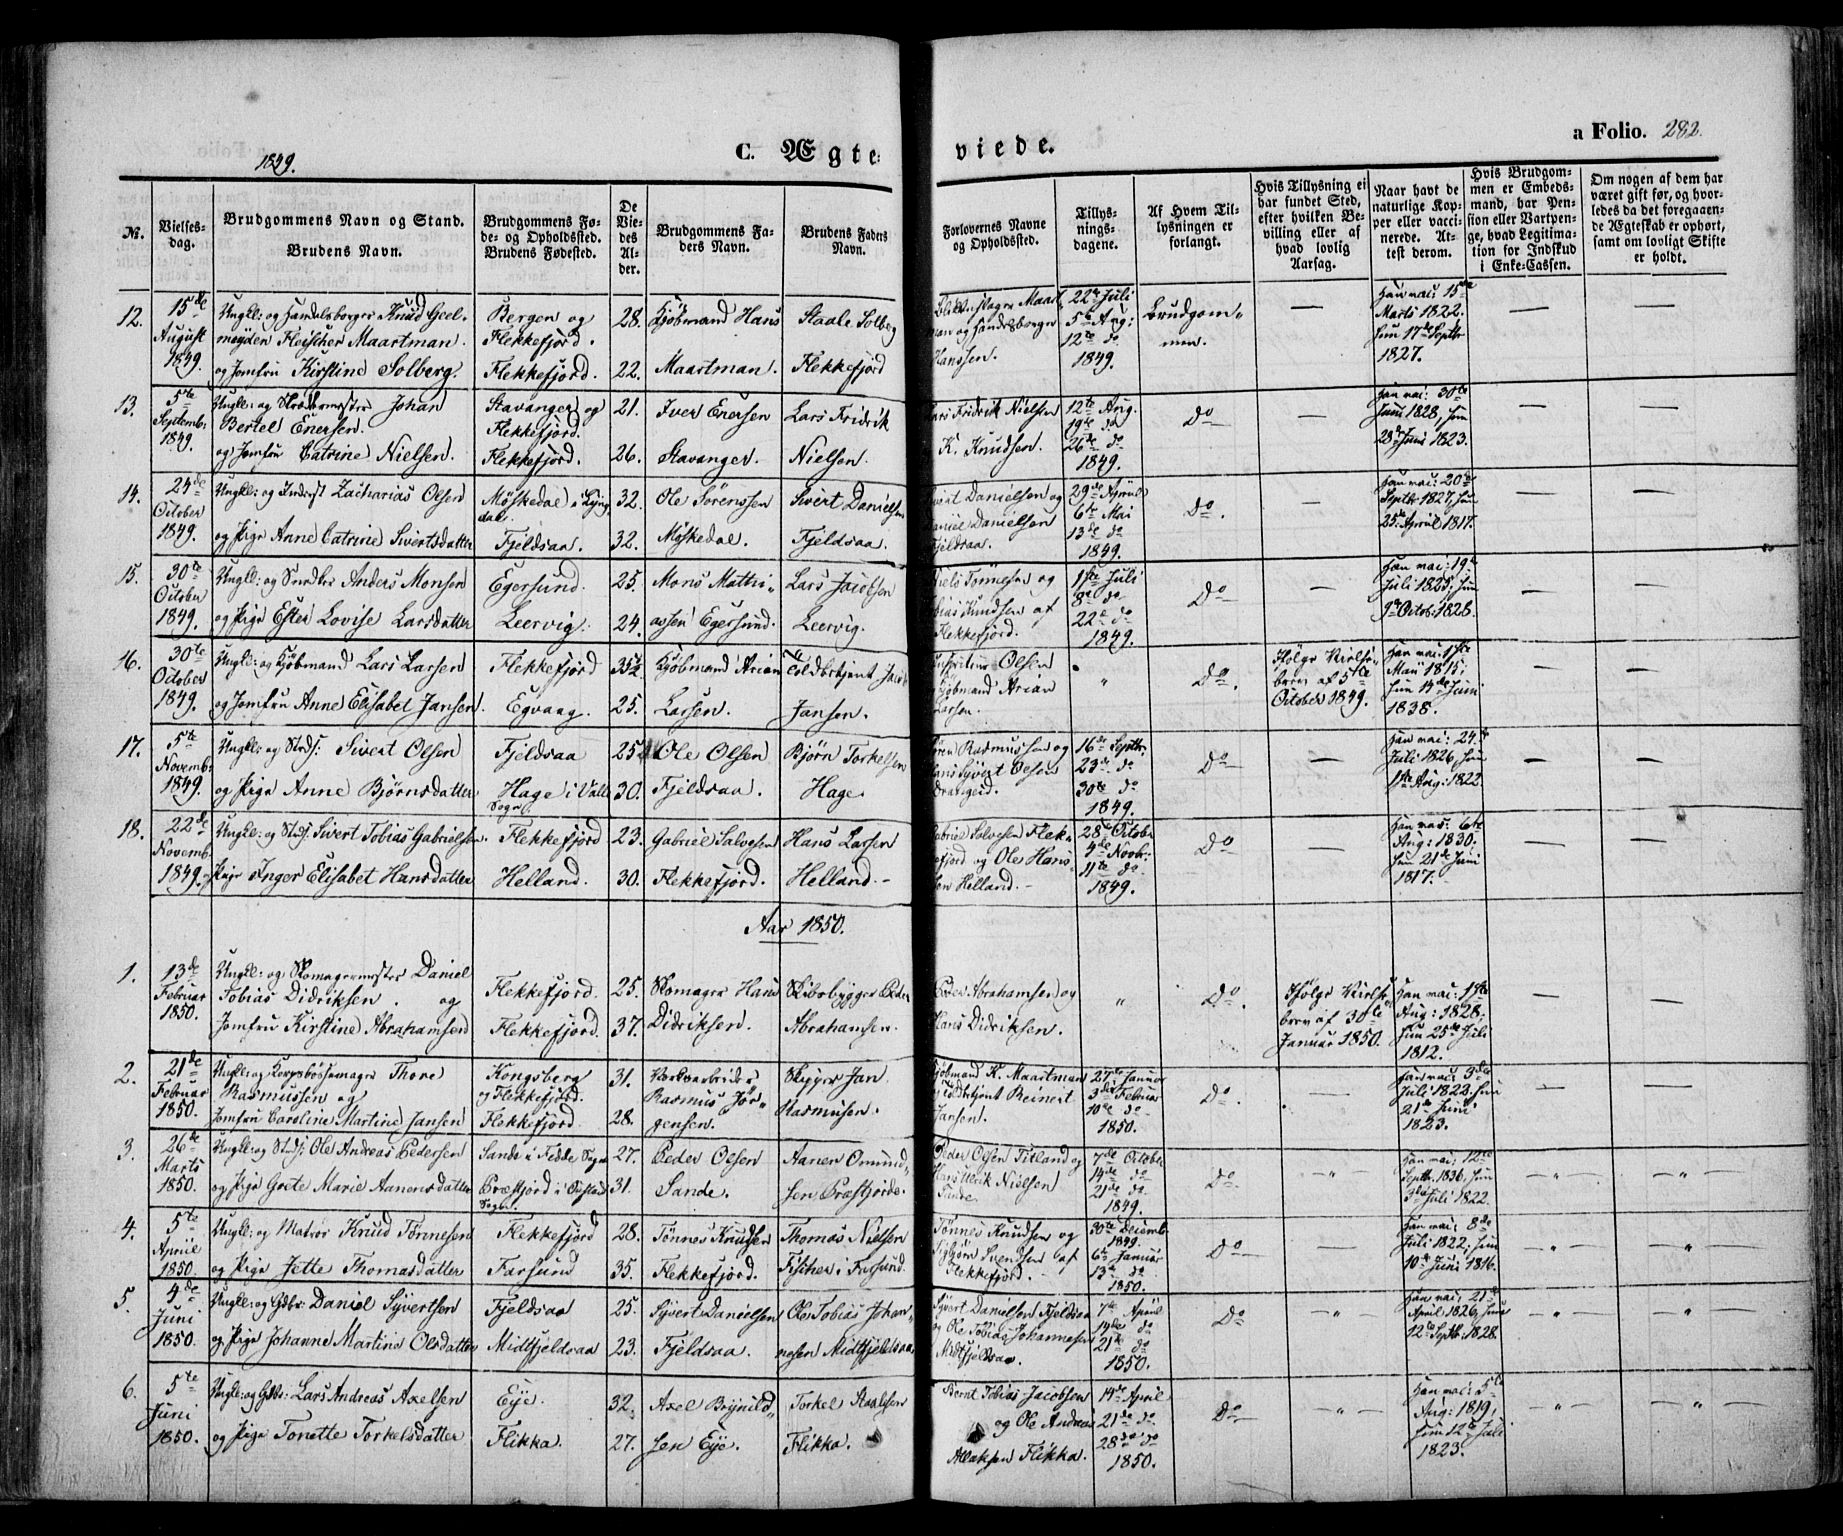 1849.
C. Ægteviede.
a Folio. 282.
№.
Vielsesdag.
Brudgommens Navn og Stand.
Brudens Navn.
Brudgommens Føde- og Opholdssted.
Brudens Fødested.
De Viedes Alder.
Brudgommens Faders Navn.
Brudens Faders Navn.
Forlovernes Navne og Opholdssted.
Tillysningsdagene.
Af Hvem Tillysningen er forlangt.
Hvis Tillysning ei har fundet Sted, efter hvilken Bevilling eller af hvad lovlig Aarsag.
Naar havt de naturlige Kopper eller vaccinerede. Attest derom.
Hvis Brudgommen er Embedsmand, har Pension eller Vartpenge, hvad Legitimation for Indskud i Enke-Cassen.
Om nogen af dem har været gift før, og hvorledes da det foregaaende Ægteskab er ophørt, samt om lovligt Skifte er holdt.
12. 15de August 1849.
Ungkl: og Handelsborger Knud Geelmøyden Fleischer Maartman.
og Jomfru Kirstine Solberg.
Bergen og Flekkefjord.
Flekkefjord.
28.
22.
Kjöbmand Hans Maartman.
Staale Solberg Flekkefjord
Maartman og Handelsborger Hanssen.
22de Juli 5te Aug: 12te do 1849.
Brudgommen.
—
Han vac: 15de Marts 1822. Hun 17de Septbr 1827.
— —
13. 5te Septemb: 1849.
Ungkl: og Skrædermester Johan Bertel Enersen.
og Jomfru Catrine Nielsen.
Stavanger og Flekkefjord.
Flekkefjord.
21.
26.
Iver Enersen Stavanger.
Lars Fridrik Nielsen.
Lars Fridrik Nielsen
K. Knudsen.
12te Aug. 19de do 26de do 1849.
Do
—
Han vac: 30te Juni 1828, Hun 28de Juni 1823.
— —
14. 24de October 1849.
Ungkl: og Inderst Zacharias Olsen
og Pige Anne Catrine Sivertsdatter
Møskedal i Lyngdal.
Fjeldsaa.
32.
32.
Ole Sörenssen Møskedal.
Sivert Danielsen Fjeldsaa.
Sivert Danielsen og Daniel Danielsen Fjeldsaa.
29de Apriil 6te Mai 13de do 1849.
Do.
—
Han vac: 20de Septbr 1827, Hun 25de April 1817.
— —
15. 30te October 1849.
Ungkl: og Snedker Anders Monsen
og Pige Ester Lovise Larsdatter
Egersund.
Leervig.
25.
24.
Mons Mathiassen Egersund.
Lars Jacobsen Leervig.
Niels Tönnesen og Tobias Knudsen af Flekkefjord.
1ste Juli 8de do 22de do 1849.
Do
—
Han vac: 19de Juli 1825, Hun 9de Octob: 1828.
— —
16. 30te October 1849.
Ungkl: og Kjöbmand Lars Larsen
og Jomfru Anne Elisabet Jansen.
Flekkefjord
Egvaag.
35½
25.
Kjöbmand Arian Larsen.
Toldbetjent Jacob Jansen.
Olsen
og Kjöbmand Arian Larsen.
"
Do.
Ifölge Vielsebrev af 5te October 1849.
Han vac: 1ste Mai 1815; Hun 14de Juni 1838.
— —
17. 5te Novemb: 1849.
Ungkl: og Strds: Sivert Olsen
og Pige Anne Björnsdatter
Fjeldsaa
Hage i Valle Sogn.
25
30.
Ole Olsen Fjeldsaa.
Bjørn Torkelsen Hage.
Sören Rasmussen og Hans Syvert Olsen Drangeid.
16de Septbr. 23de do 30te do 1849.
Do
—
Han vac: 24de Juli 1826, Hun 1ste Aug: 1822.
— —
18. 22de Novemb. 1849.
Ungkl: og Strds: Sivert Tobias Gabrielsen
og Pige Inger Elisabet Hansdatter
Flekkefjord
Helland.
23.
30.
Gabriel Salvesen Flekkefjord.
Hans Larsen Helland.
Gabriel Salvesen Flekkefjord og Ole Hanssen Helland.
28de October 4de Novbr: 11te do 1849.
Do
—
Han vac: 6te Aug: 1830. Hun 21de Juni 1817.
— —
Aar 1850.
1. 13de Februar 1850.
Ungkl: og Skomagermester Daniel Tobias Didriksen. og
Jomfru Kirstine Abrahamsen
Flekkefjord.
Flekkefjord.
25.
37.
Skomager Hans Didriksen.
Skibsbygger Peder Abrahamsen.
Peder Abrahamsen og Hans Didriksen.
"
Do.
Ifölge Vielsebrev af 30te Januar 1850.
Han vac: 1ste Aug: 1828, Hun 25de Juli 1812.
— —
2. 21de Februar 1850.
Ungkl: og Korpsbössemager Thore Rasmussen og
Jomfru Caroline Martine Jansen
Kongsberg og Flekkefjord.
Flekkefjord.
31.
28.
Værksarbeider Rasmus Jörgensen.
Skipper Jan Rasmusen.
Kjöbmand K. Maartman og Toldbetjent Reinert Jansen.
27de Januar 3die Februar 10de do 1850.
Do.
—
Han vac: 3die Juli 1822. Hun 21de Juni 1823.
— —
3. 26de Marts 1850.
Ungkl: og Strds: Ole Andreas Pedersen
og Pige Grete Marie Aanensdatter
Sande i Fedde Sogn
Præstfjord i Sogn.
27.
31.
Peder Olsen Sande.
Aanen Omundsen Præstfjorde.
Peder Olsen og Hans Henrik Nielsen
7de October 14de do 21de do 1849.
Do.
"
Han vac: 12te Septbr. 1836, Hun 3die Juli 1822.
" "
4. 5te Apriil 1850.
Ungkl: og Matros Knud Tönnesen
og Pige Jette Thomasdatter
Flekkefjord
Farsund
28.
35.
Tönnes Knudsen Flekkefjord.
Thomas Nielsen Fischer i Farsund.
Tönnes Knudsen og Sigbjörn Svendsen af Flekkefjord.
30te Decemb. 1849. 6te Januar 13de do 1850.
Do
—
Han vac: 8de Juli 1822, Hun 10de Juni 1816.
" "
5. 4de Juni 1850.
Ungkl: og Gdbr: Daniel Syvertsen
og Pige Johanne Martine Olsdatter
Fjeldsaa
Midtfjeldsaa
25.
23.
Syvert Danielsen Fjeldsaa.
Ole Tobias Johannesen Midtfjeldsaa
Syvert Danielsen Fjeldsaa og Ole Tobias Johannesen Midtfjeldsaa.
7de April 14de do 21de do 1850.
Do
"
Han vac: 21de April 1826, Hun 12te Septb: 1828.
" "
6. 5te Juni 1850.
Ungkl: og Gdbr: Lars Andreas Axelsen
og Pige Tonette Torkelsdatter
Eye.
Flikka.
32.
27.
Axel Brynildsen Eye.
Torkel Staalsen Flikka.
Bernt Tobias Jacobsen og Ole Andreas Atlaksen Flikka.
14de April 21de do. 28de do 1850.
Do
"
Han vac: 5te Aug: 1819, Hun 12te Juli 1823.
" "